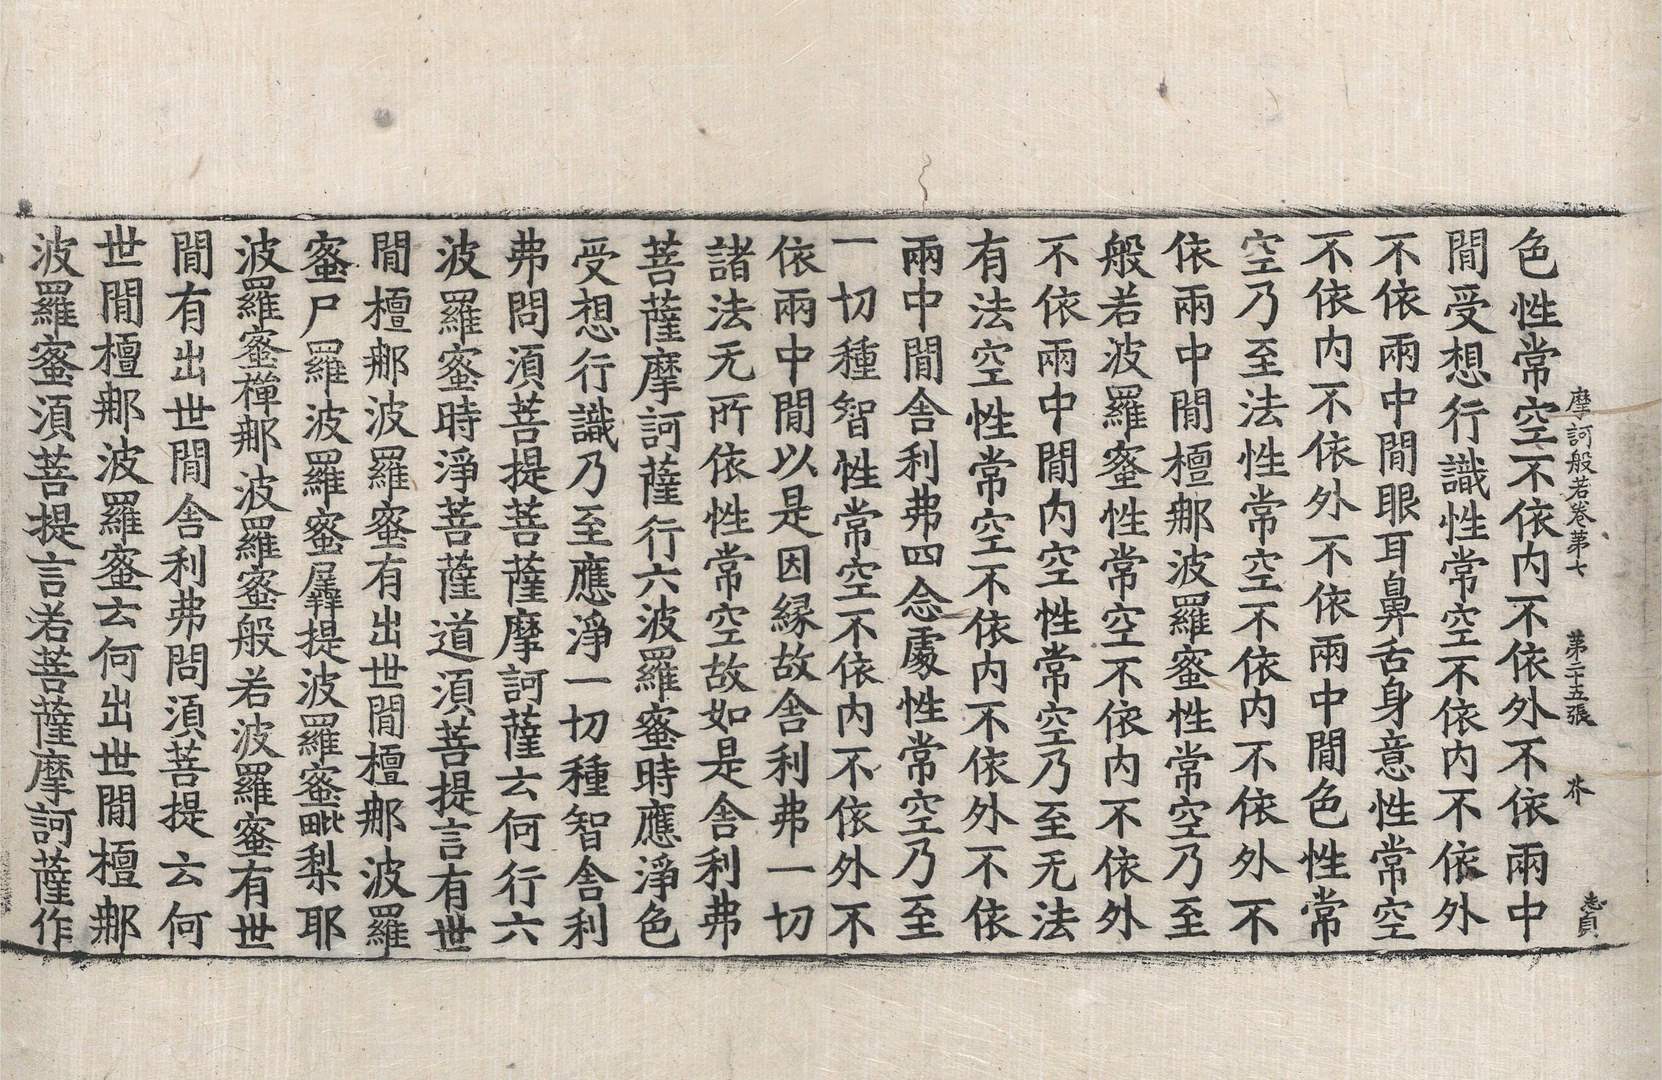 摩訶般若卷第七 第二十五張 芥 志貞
色性常空不依内不依外不依兩中
閒受想行識性常空不依内不依外
不依兩中閒眼耳鼻舌身意性常空
不依内不依外不依兩中閒色性常
空乃至法性常空不依内不依外不
依兩中閒檀那波羅蜜性常空乃至
般若波羅蜜性常空不依内不依外
不依兩中閒内空性常空乃至无法
有法空性常空不依内不依外不依
兩中閒舍利弗四念處性常空乃至
一切種智性常空不依内不依外不
依兩中閒以是因縁故舍利弗一切
諸法无所依性常空故如是舍利弗
菩薩摩訶薩行六波羅蜜時應淨色
受想行識乃至應淨一切種智舍利
弗問須菩提菩薩摩訶薩云何行六
波羅蜜時淨菩薩道須菩提言有世
閒檀那波羅蜜有出世閒檀那波羅
蜜尸羅波羅蜜羼提波羅蜜毗梨耶
波羅蜜禪那波羅蜜般若波羅蜜有世
閒有出世閒舍利弗問須菩提云何
世閒檀那波羅蜜云何出世閒檀那
波羅蜜須菩提言若菩薩摩訶薩作